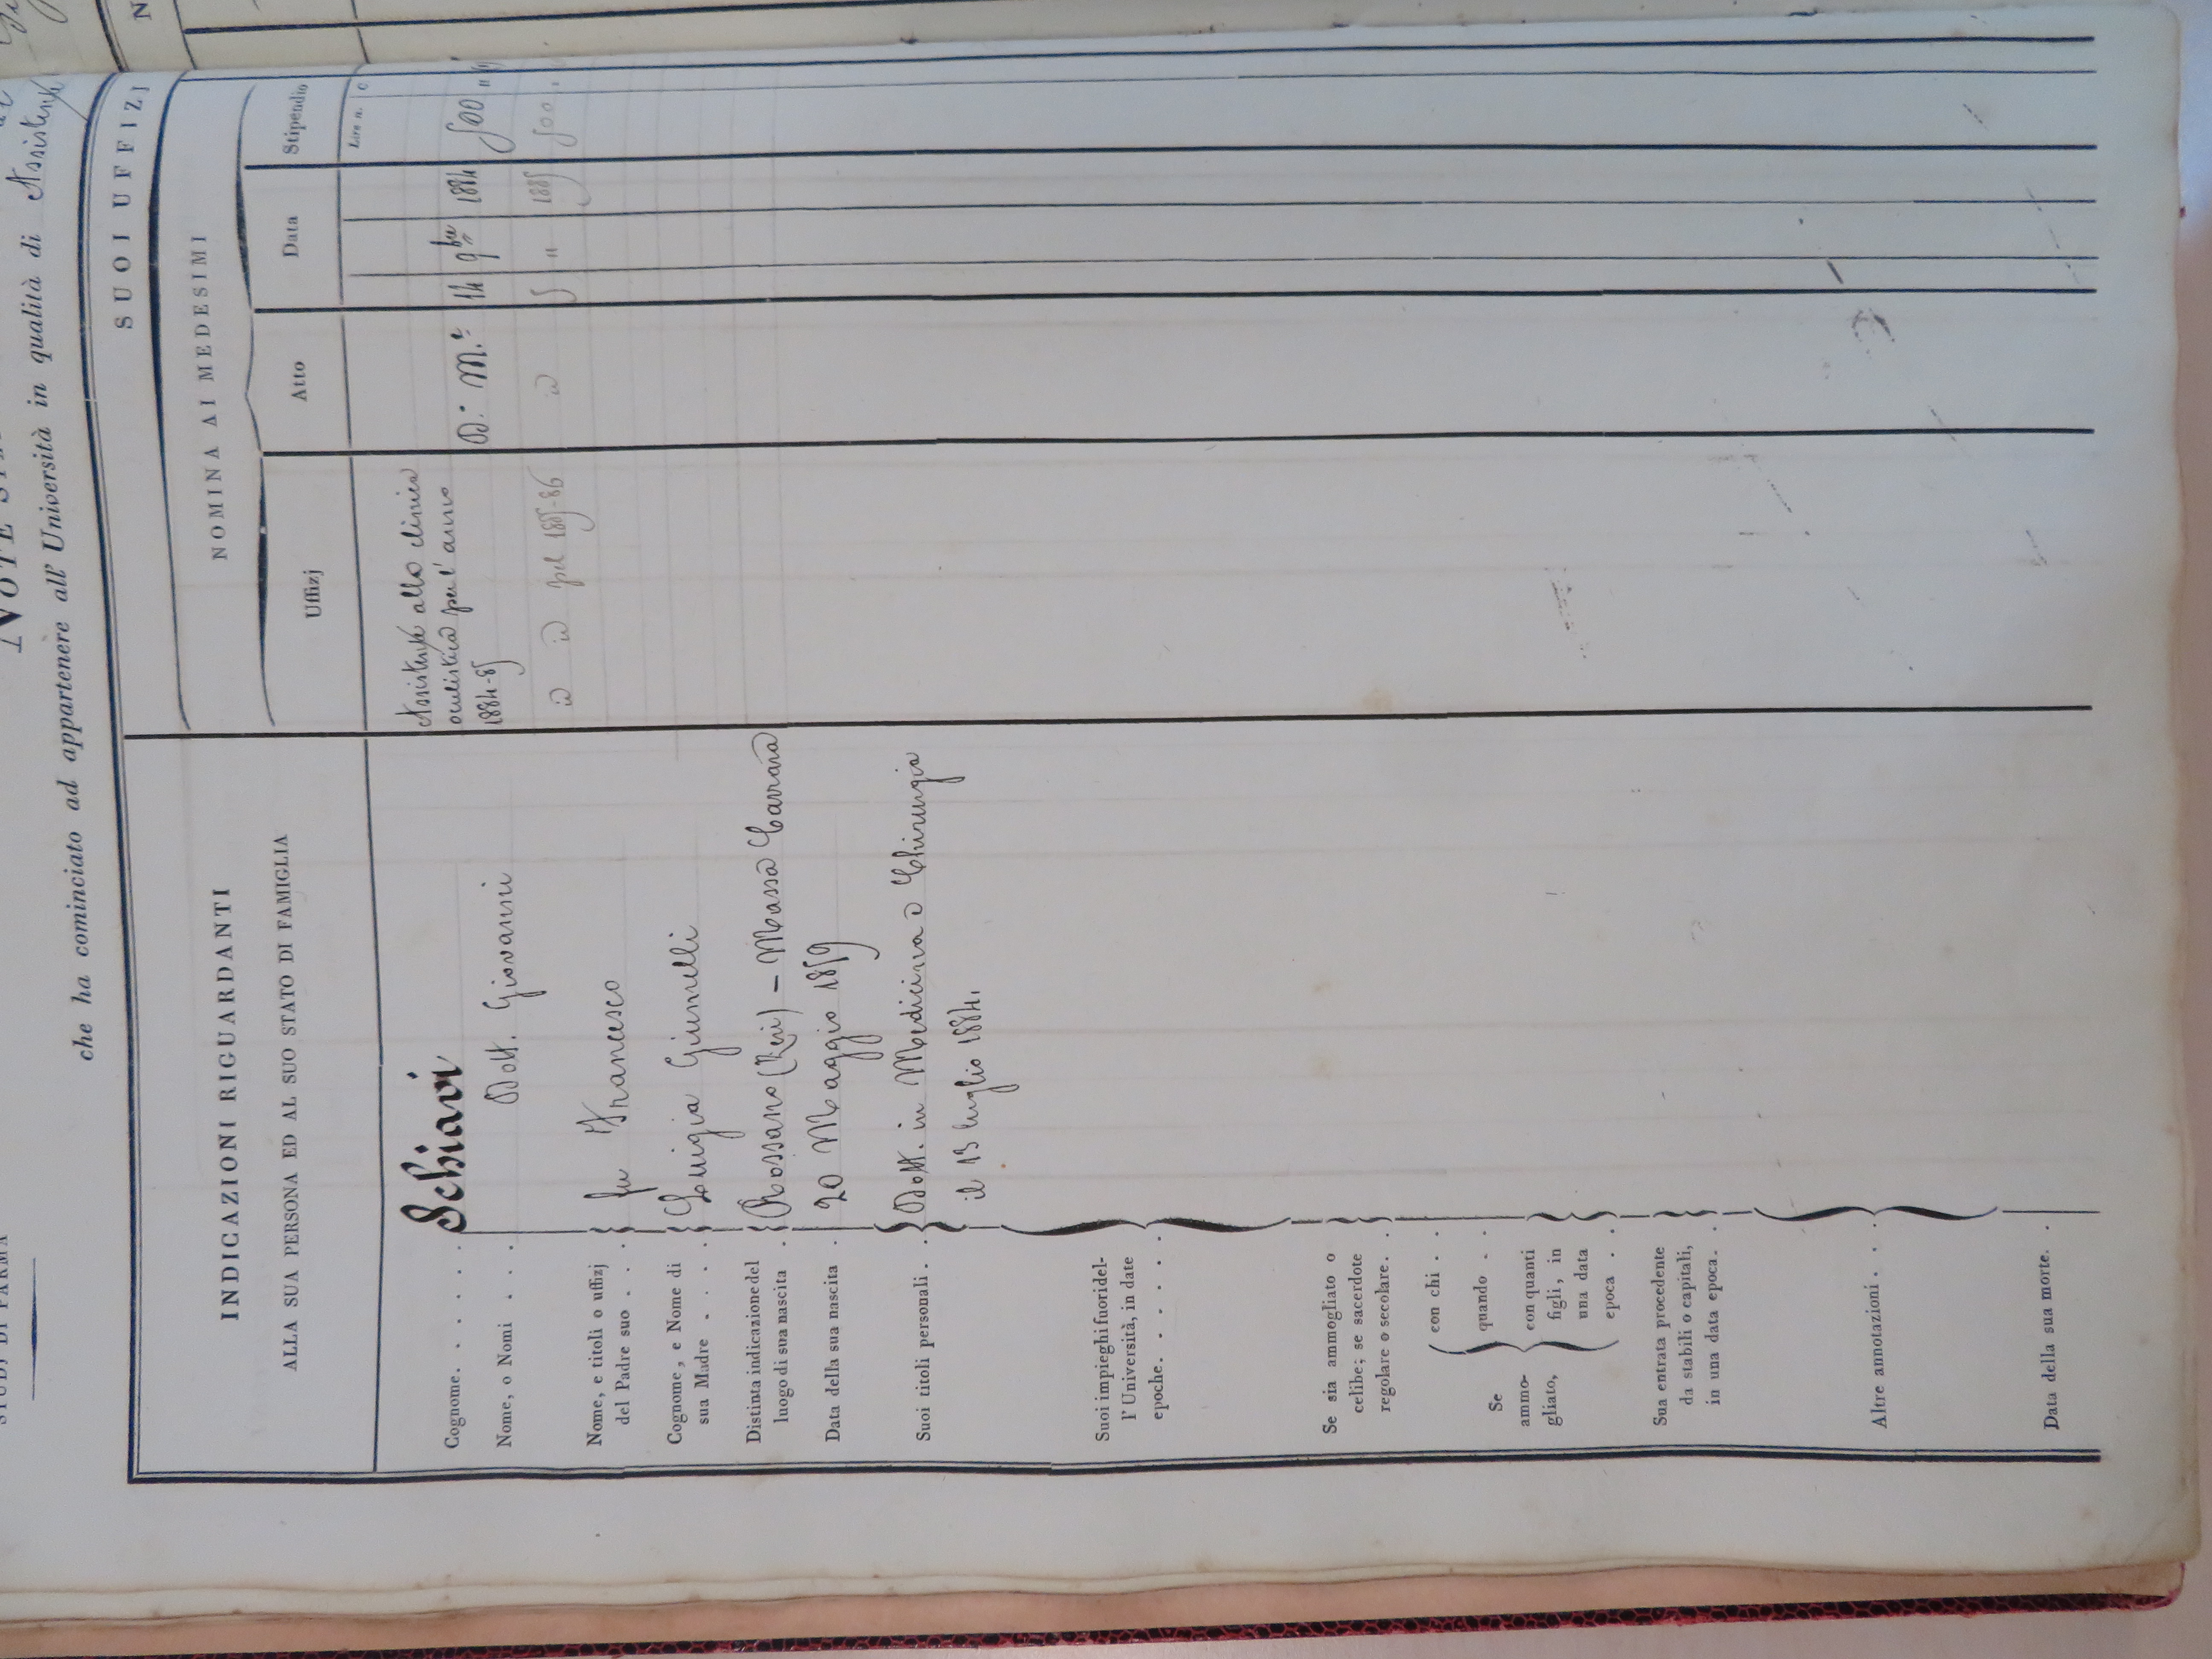 STUDJ DI PARMA
NOTE
che ha cominciato ad appartenere all' Università in qualità di Assistente
INDICAZIONI RIGUARDANTI
ALLA SUA PERSONA ED AL SUO STATO DI FAMIGLIA
SUOI UFFIZJ
NOMINA AI MEDESIMI
Uffizj
Atto
Data
Stipendio
Lire n. c
Cognome. . . . . . Schiavi
Nome, o Nomi . . . Dott. Giovanni
Nome, e titoli o uffizj
del Padre suo . . . fu Francesco
Cognome, e Nome di
sua Madre . . . . Luigia Giumelli
Distinta indicazione del
luogo di sua nascita . Rossano (Zeri) – Massa Carrara
Data della sua nascita . 20 Maggio 1859
Suoi titoli personali . . Dott. in Medicina e Chirurgia
il 13 luglio 1884.
Suoi impieghi fuori del-
l' Università, in date
epoche. . . . . . .
Se sia ammogliato o
celibe; se sacerdote
regolare o secolare. . .
Se
ammo-
gliato,
con chi . .
quando . .
con quanti
figli, in
una data
epoca . .
Sua entrata procedente
da stabili o capitali,
in una data epoca. . .
Altre annotazioni . . .
Data della sua morte. .
Assistente alla clinica
oculistica per l' anno
1884-85
D.° M.e 14 9bre 1884 500 "
id id pel 1885-86 id 5 " 1885 500 "